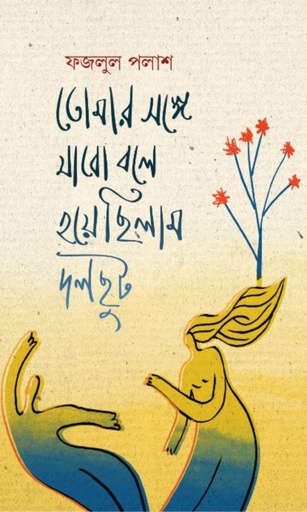 ফজলুল পলাশ
তোমার সঙ্গে
যাবো বলে
হয়েছিলাম
দলছুট